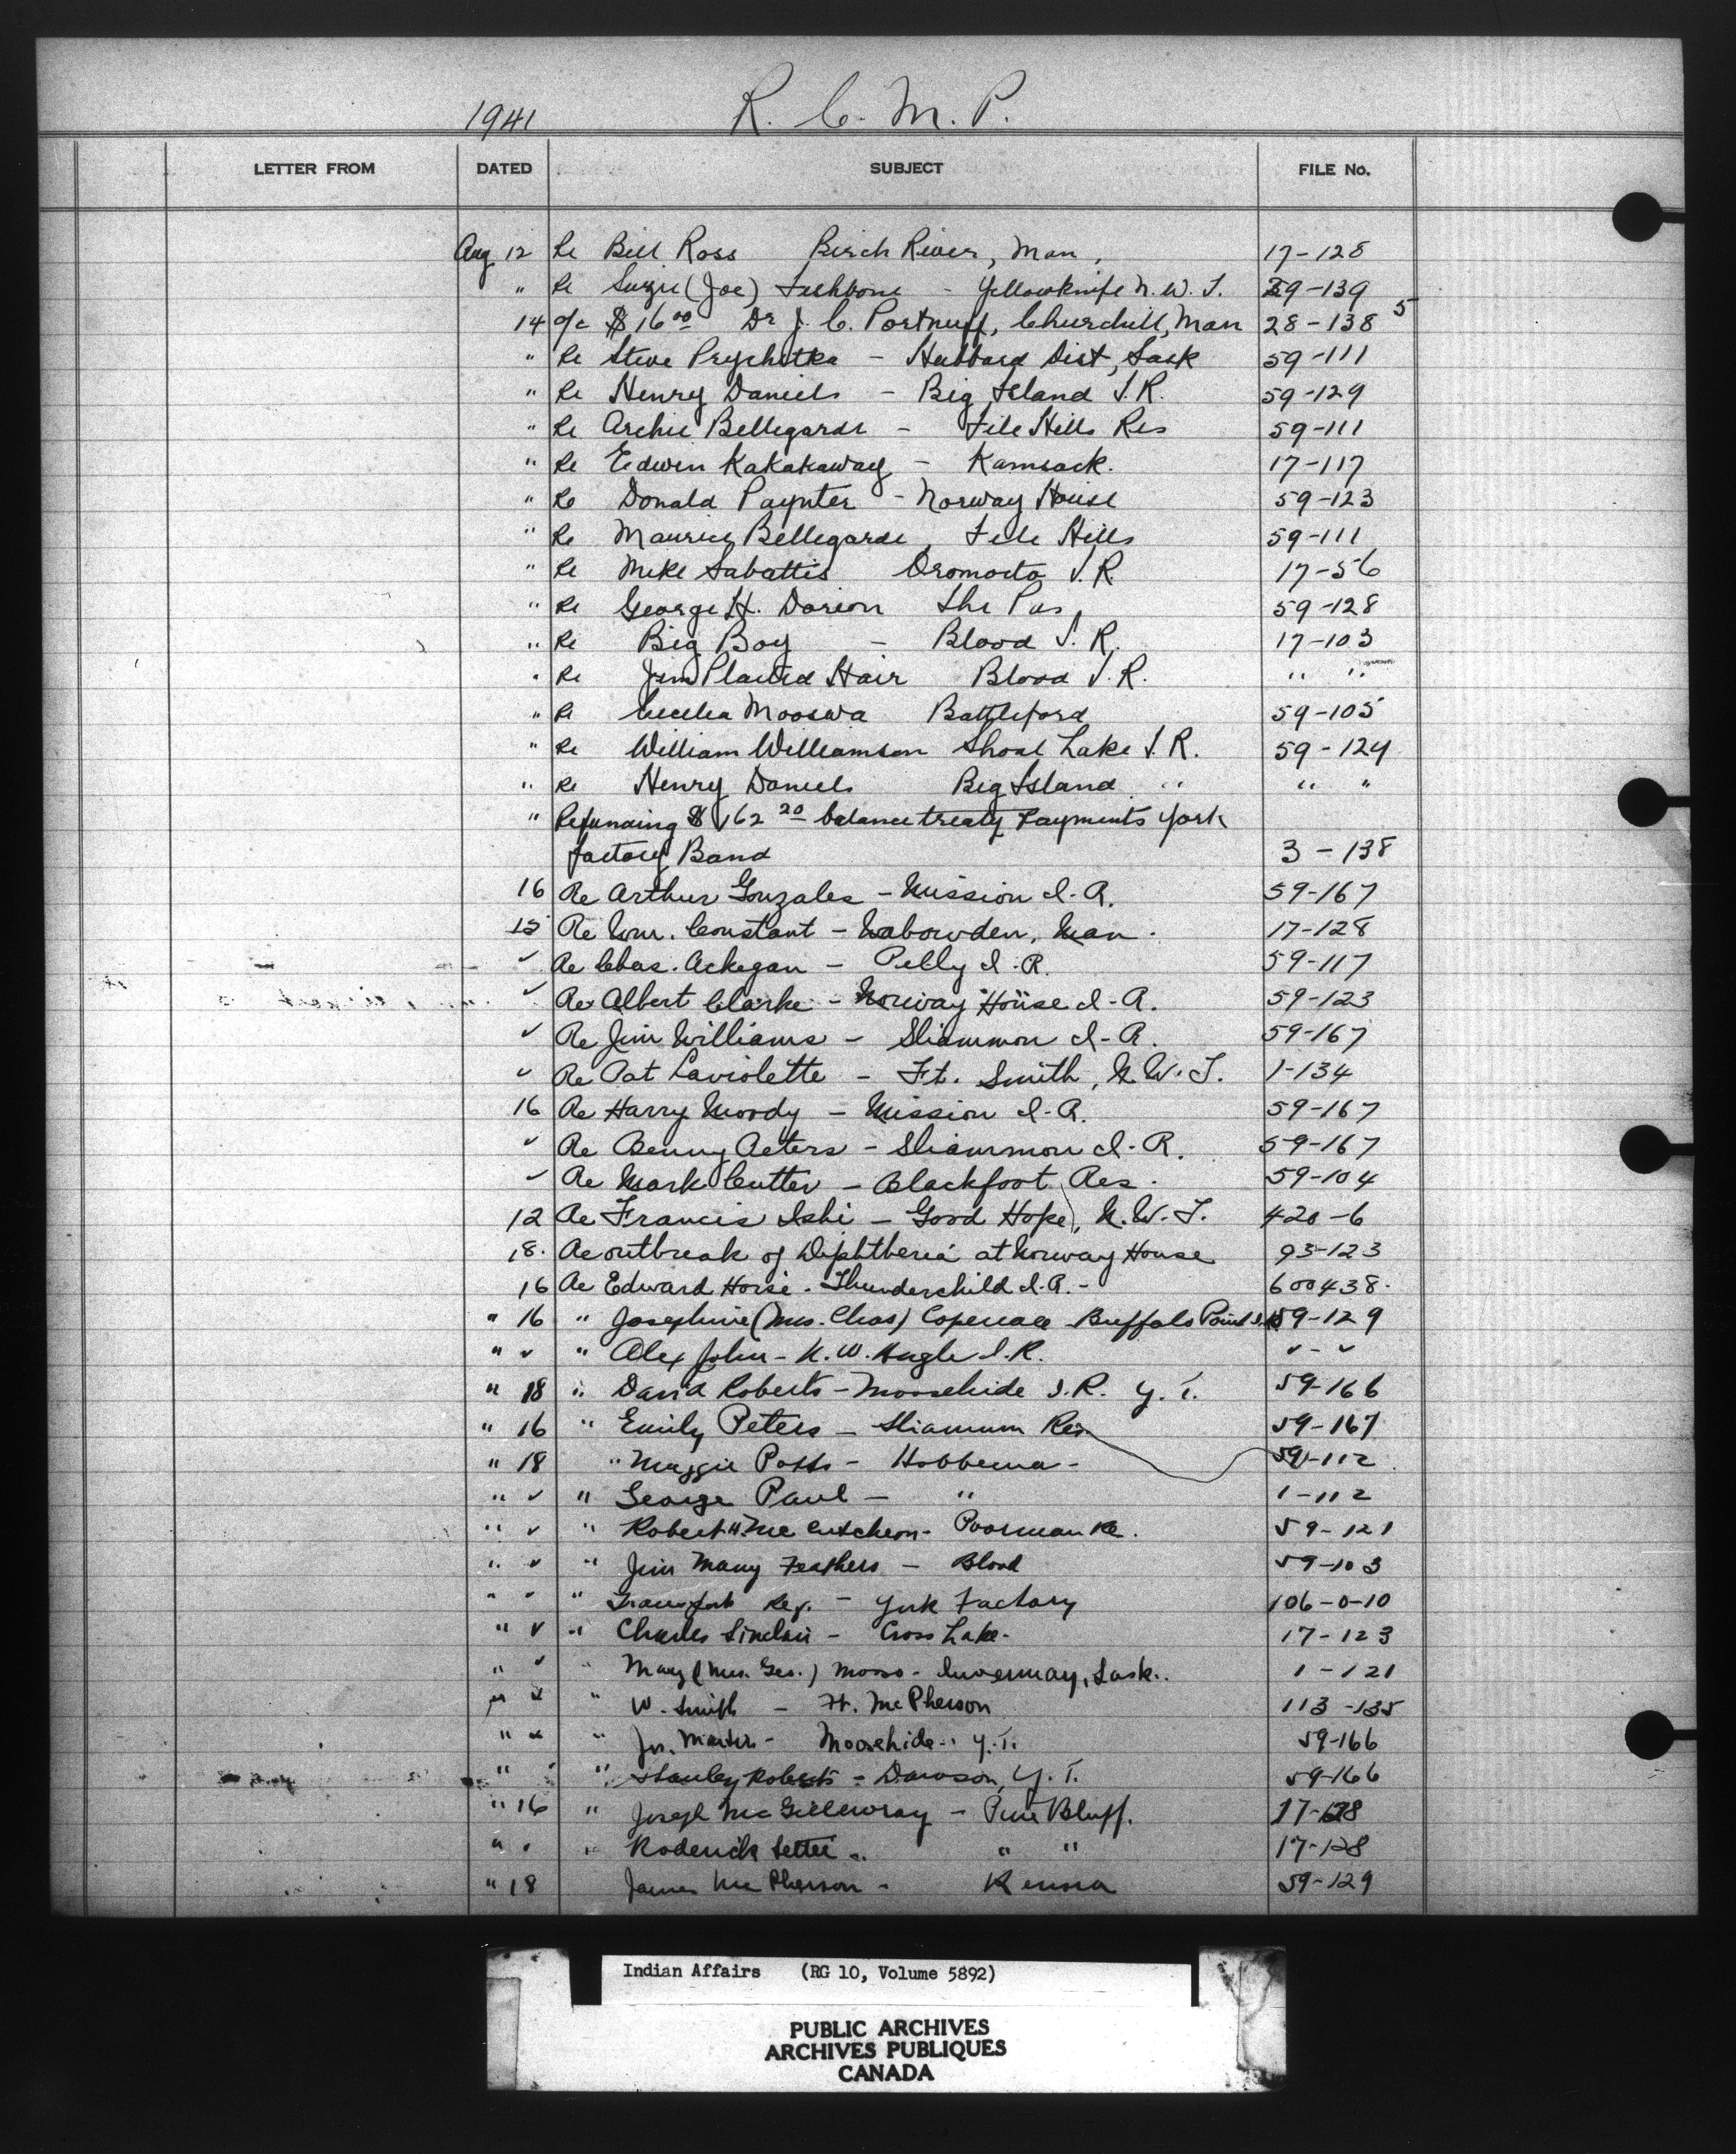 1941 R. C. M. P.
LETTER FROM DATED SUBJECT FILE No.
Aug 12 Re Bill Ross Birch River, Man, 17-128
" Re Suzie (Joe) Fishbone - Yellowknife N.W.T. 59-139
14 a/c $16 00 Dr J. C. Portnuff, Churchill, Man 28-138 5
" Re Steve Prychitka - Hubbard Dist, Sask 59-111
" Re Henry Daniels - Big Island I.R. 59-129
" Re Archie Bellegarde - File Hills Res 59-111
" Re Edwin Kakakaway - Kamsack. 17-117
" Re Donald Paynter - Norway House 59-123
" Re Maurice Bellegarde, File Hills 59-111
" Re Mike Sabattis Oromocto I.R. 17-56
" Re George H. Dorion The Pas, 59-128
" Re Big Boy - Blood I.R. 17-103
" Re Jim Plaited Hair Blood I.R. " "
" Re Cecelia Mooswa Battleford 59-105
" Re William Williamson Shoal Lake I.R. 59-124
" Re Henry Daniels Big Island " " "
" Refunding $162 20 balance treaty payments York
Factory Band 3-138
16 Re Arthur Gonzales - Mission I.R. 59-167
15 Re Wm. Constant - Wabowden, Man. 17-128
" Re Chas. Ackegan - Pelly I.R. 59-117
" Re Albert Clarke - Norway House I-R. 59-123
" Re Jim Williams - Sliammon I-R. 59-167
" Re Pat Laviolette - Ft. Smith, N.W.T. 1-134
16 Re Harry Moody - Mission I-R. 59-167
" Re Benny Peters - Sliammon I-R. 59-167
" Re Mark Cutter - Blackfoot Res. 59-104
12 Re Francis Ishi - Good Hope, N.W.T. 420-6
18. Re outbreak of Diphtheria at Norway House 93-123
16 Re Edward Horse - Thunderchild I.R. - 600438.
" 16 " Josephine (Mrs. Chas) Copenace Buffalo Point I.R. 59-129
" " " Alex John - N.W. Angle I.R. " - "
" 18 " David Roberts - Moosehide I.R. Y.T. 59-166
" 16 " Emily Peters - Sliammon Res. 59-167
" 18 " Maggie Potts - Hobbema - 59-112
" " " George Paul - " 1-112
" " " Robert H. McCutcheon - Poorman Re. 59-121
" " " Jim Many Feathers - Blood 59-103
" " " Transport Req. - York Factory 106-0-10
" " " Charles Sinclair - Cross Lake - 17-123
" " " Mary (Mrs. Geo.) Moso - Invermay, Sask. 1-121
" " " W. Smith - Ft. McPherson 113-135
" " " Jos. Martin - Moosehide - Y.T. 59-166
" " " Stanley Roberts - Dawson, Y.T. 59-166
" 16 " Joseph McGillivray - Pine Bluff. 17-128
" " " Roderick Settee - " " 17-128
" 18 James McPherson - Kenora 59-129
Indian Affairs (RG 10, Volume 5892)
PUBLIC ARCHIVES
ARCHIVES PUBLIQUES
CANADA